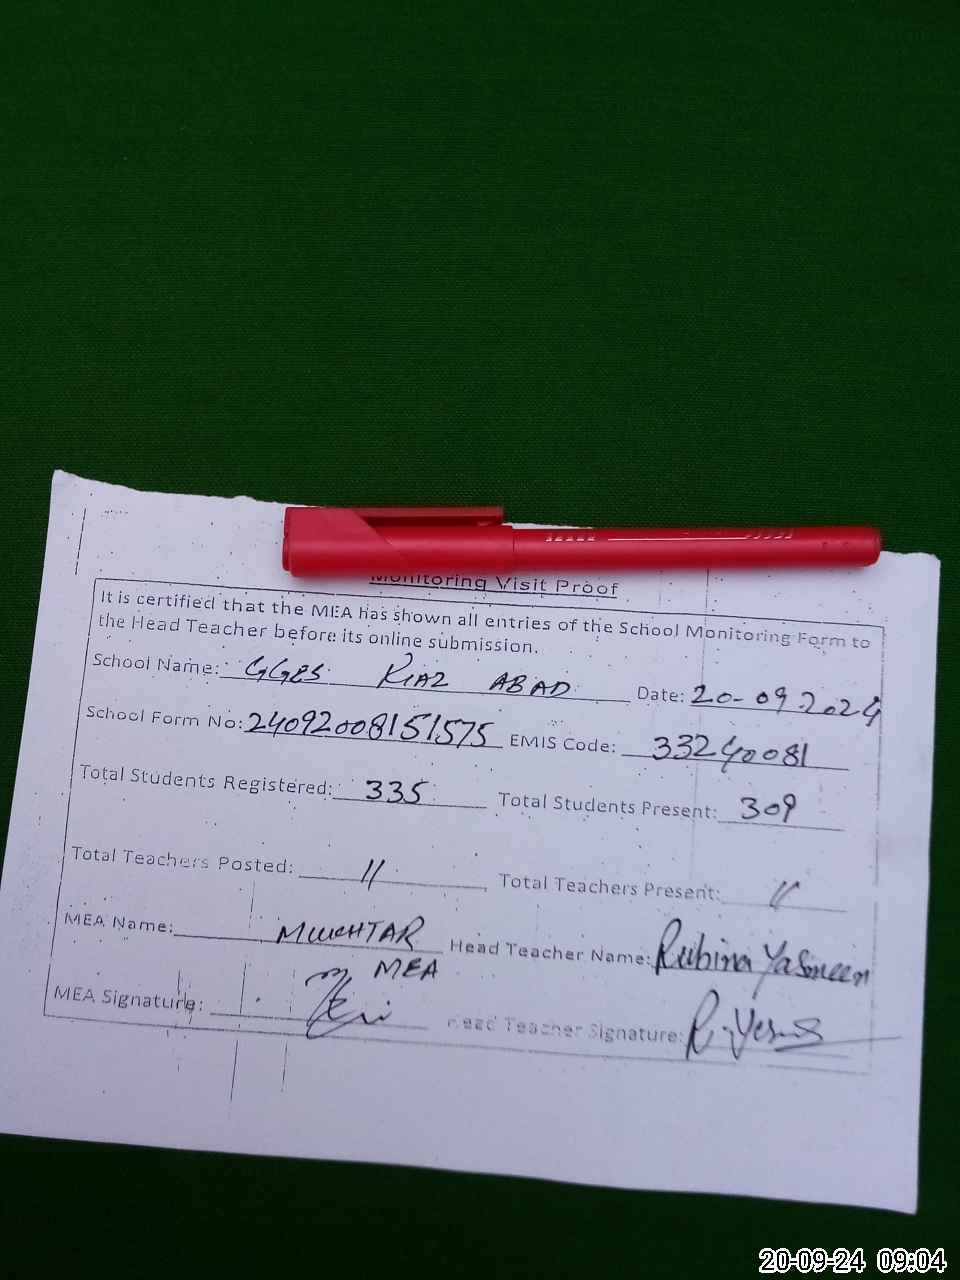 Monitoring Visit Proof
It is certified that the MEA has shown all entries of the School Monitoring Form to
the Head Teacher before its online submission.
School Name: GGES RIAZ ABAD Date: 20-09-2024
School Form No: 24092008151575 EMIS Code: 33240081
Total Students Registered: 335 Total Students Present: 309
Total Teachers Posted: 11 Total Teachers Present: 11
MEA Name: MUKHTAR Head Teacher Name: Rubina Yasmeen
MEA
MEA Signature: Head Teacher Signature:
20-09-24 09:04